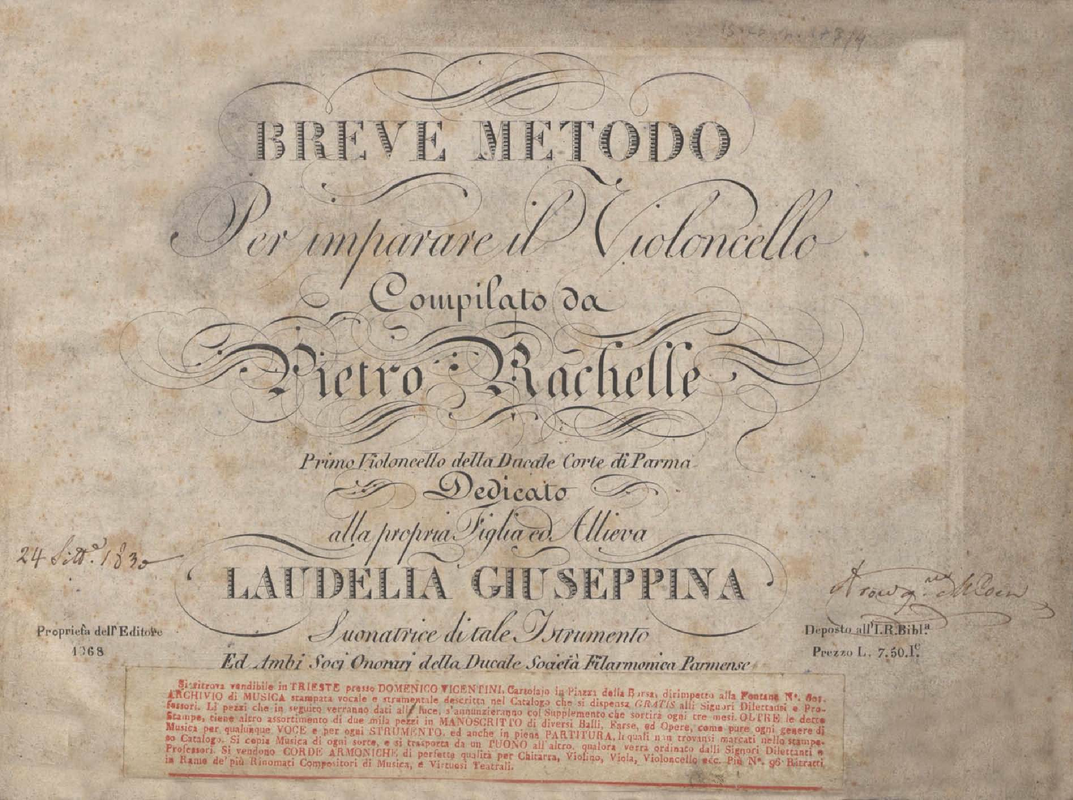 BREVE METODO
Per imparare il Violoncello
Compilato da
Pietro Rachelle
Primo Violoncello della Ducale Corte di Parma
Dedicato
alla propria Figlia ed Allieva
24 Sett.e 1830
LAUDELIA GIUSEPPINA
Suonatrice di tale Istrumento
Proprietà dell'Editore
1068
Deposto all'I.R. Bibl.a
Prezzo L. 7,50.
Ed Ambi Soci Onorarj della Ducale Società Filarmonica Parmense
Si ritrova vendibile in TRIESTE presso DOMENICO VICENTINI, Cartolajo in Piazza della Borsa, dirimpetto alla Fontana Nº.
ARCHIVIO di MUSICA stampata vocale e strumentale descritta nel Catalogo che si dispensa GRATIS alli Signori Dilettanti e Pro-
fessori. Li pezzi che in seguito verranno dati alla luce, s'annunzieranno col Supplemento che sortirà ogni tre mesi. OLTRE le dette
Stampe, tiene altro assortimento di due mila pezzi in MANOSCRITTO di diversi Balli, Farse, ed Opere, come pure ogni genere di
Musica per qualunque VOCE e per ogni STRUMENTO, ed anche in piena PARTITURA, li quali non trovansi marcati nello stampa-
to Catalogo. Si copia Musica di ogni sorte, e si trasporta da un TUONO all'altro, qualora verrà ordinato dalli Signori Dilettanti e
Professori. Si vendono CORDE ARMONICHE di perfetta qualità per Chitarra, Violino, Viola, Violoncello ecc. Più Nº. 96 Ritratti
in Rame de' più Rinomati Compositori di Musica, e Virtuosi Teatrali.